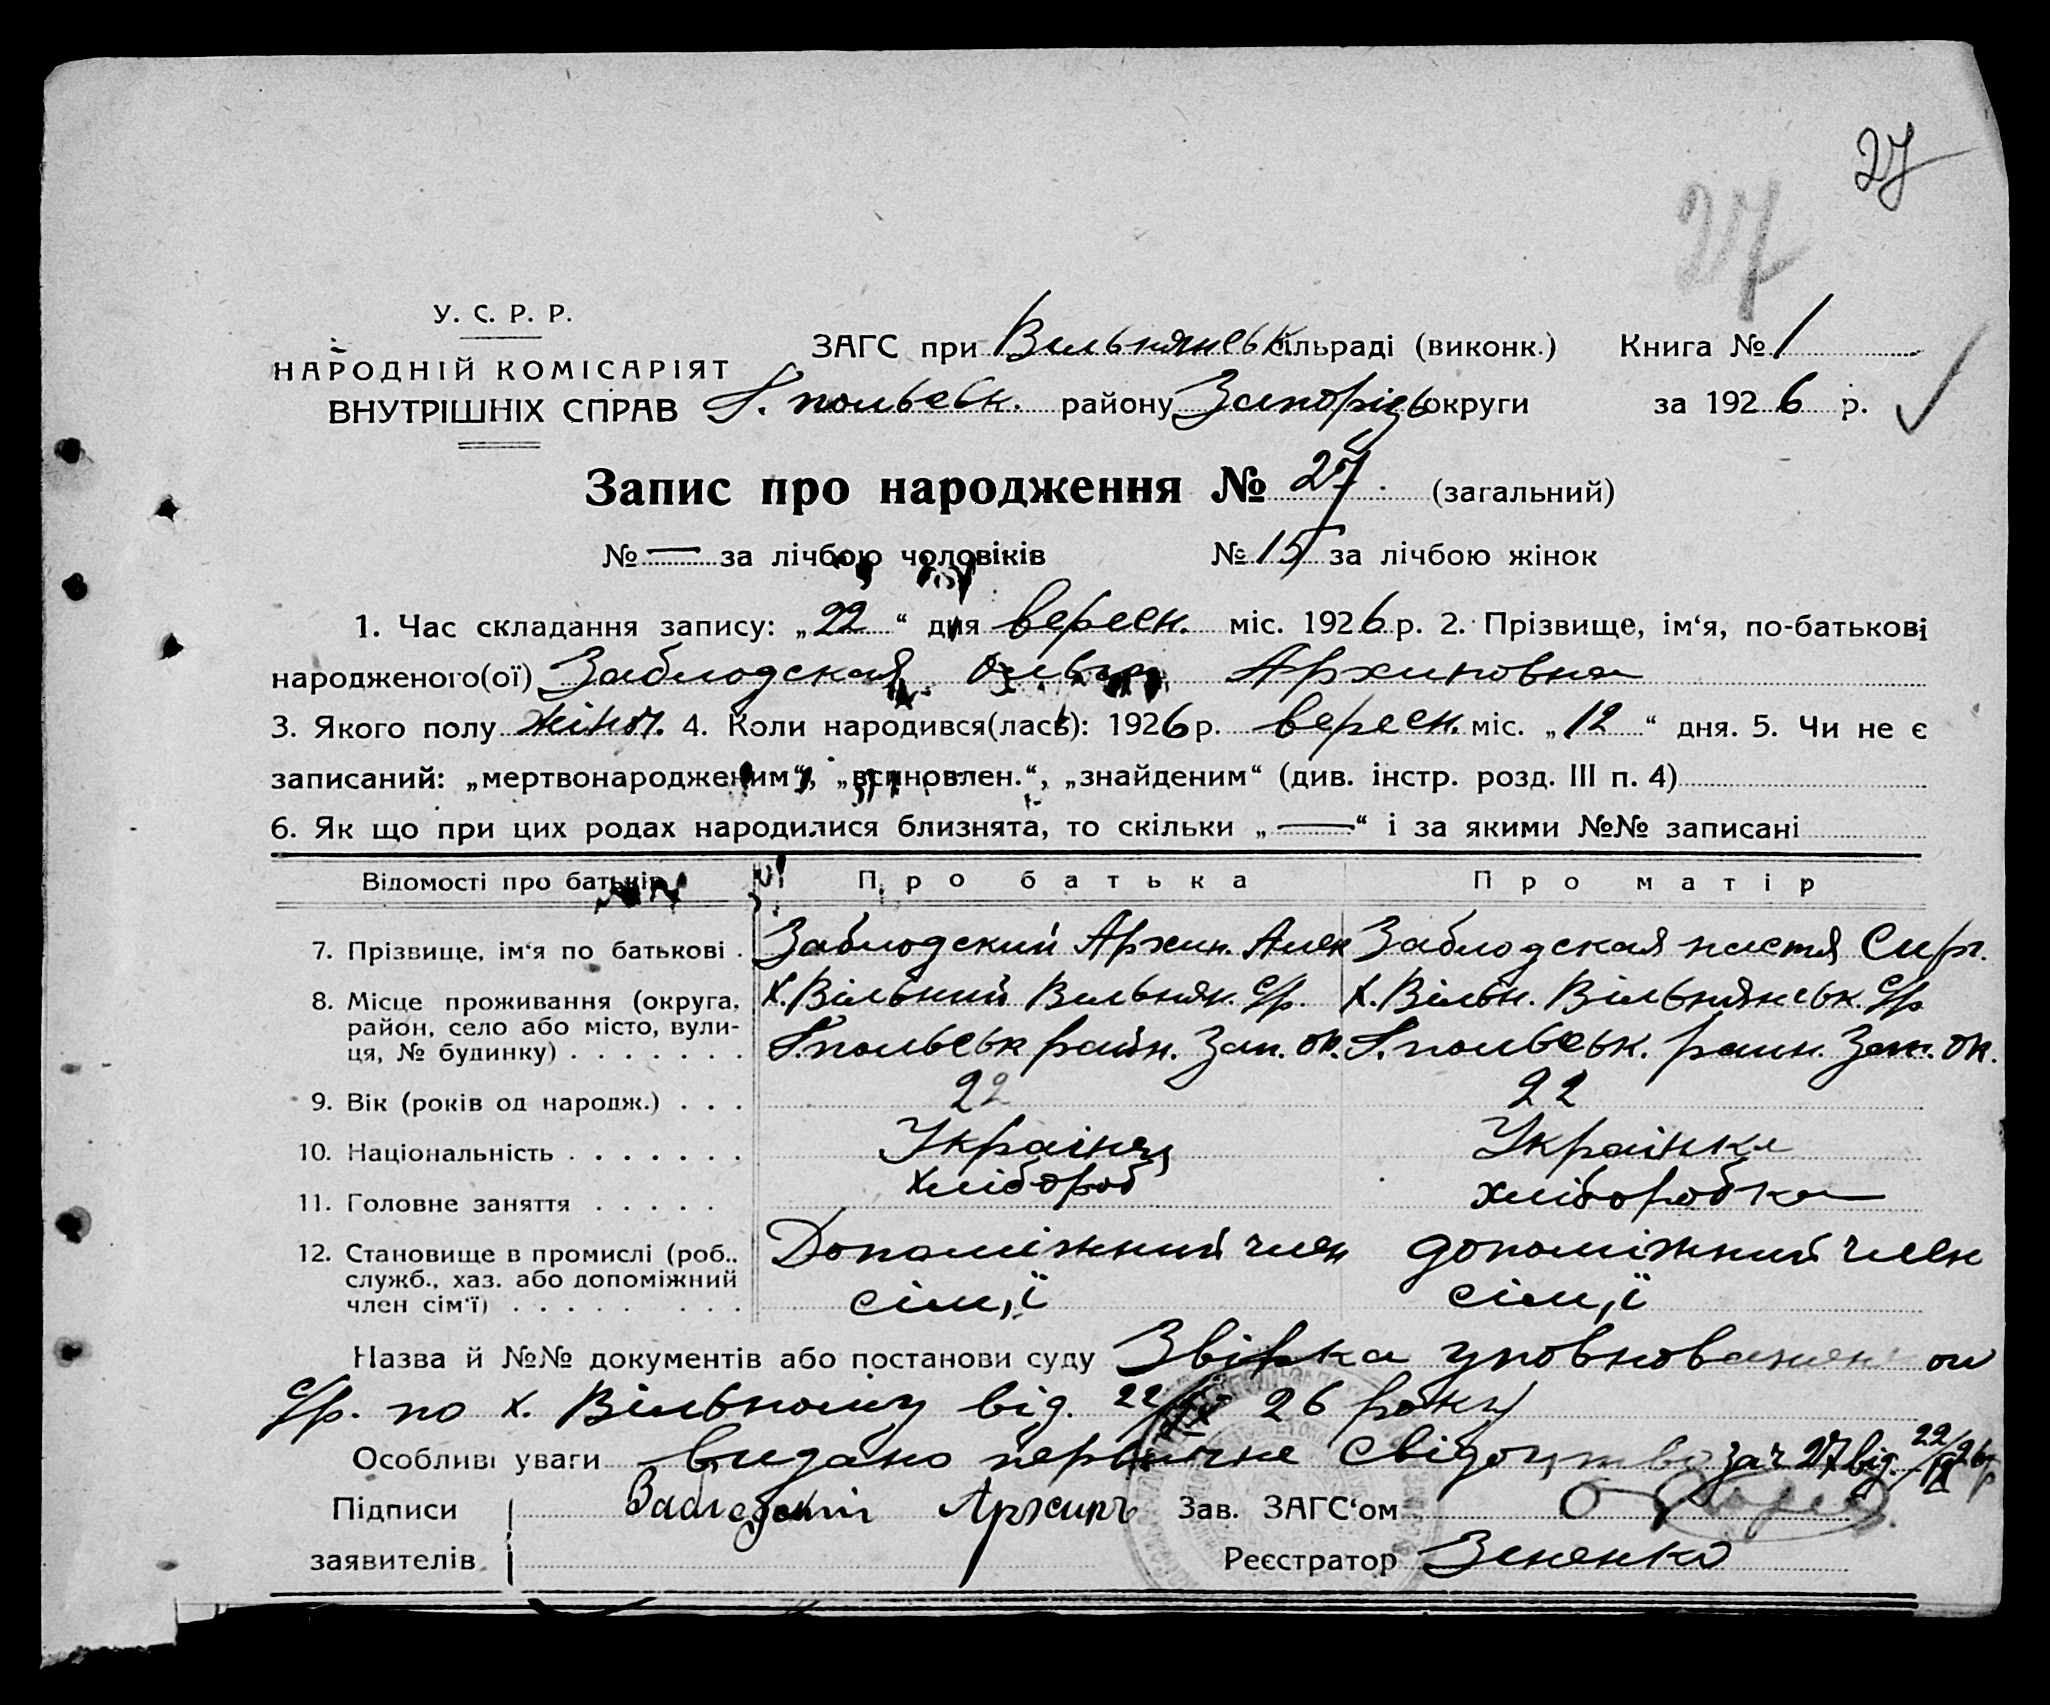 27
27
У. С. Р. Р.
НАРОДНІЙ КОМІСАРІЯТ
ВНУТРІШНІХ СПРАВ
ЗАГС при Вильнянськ сільраді (виконк.) Книга № 1
Г.польськ. району Запоріzь округи за 1926 р.
Запис про народження № 27. (загальний)
№ — за лічбою чоловіків № 15 за лічбою жінок
1. Час складання запису: „22“ дня вересн. міс. 1926 р. 2. Прізвище, ім‘я, по-батькові
народженого(ої) Заблодская Ольга Архиповна
3. Якого полу жіноч. 4. Коли народився(лась): 1926 р. вересн. міс. „12“ дня. 5. Чи не є
записаний: „мертвонародженим“, „всиновлен.“, „знайденим“ (див. інстр. розд. III п. 4)
6. Як що при цих родах народилися близнята, то скільки „—“ і за якими №№ записані
Відомості про батьків Про батька Про матір
7. Прізвище, ім‘я по батькові . Заблодский Архип. Алек Заблодская настя Сирг.
8. Місце проживання (округа, район, село або місто, вулиця, № будинку) . . . . . . .
Х. Вільний Вильнян. с/р. Х. Вільн. Вільнянськ. с/р
Г.польськ район. Зап. ок. Г.польськ. район. Зап. ок.
9. Вік (років од народж.) . . . 22 22
10. Національність . . . . . . . Украінец Украінка
11. Головне заняття . . . . . хлібороб хліборобка
12. Становище в промислі (роб., служб., хаз. або допоміжний член сім‘ї) . . . . . . . .
Допоміжний член допоміжний член
сім,ї сім,ї
Назва й №№ документів або постанови суду Звірка уповноважен
с/р. по х. Вільному від. 22/IX 26 року
Особливі уваги видано первічне свідоцтво за ч 27 від. 22/IX 26 р
Підписи Заблодский Архипъ Зав. ЗАГС‘ом
заявителів Реєстратор Зененко